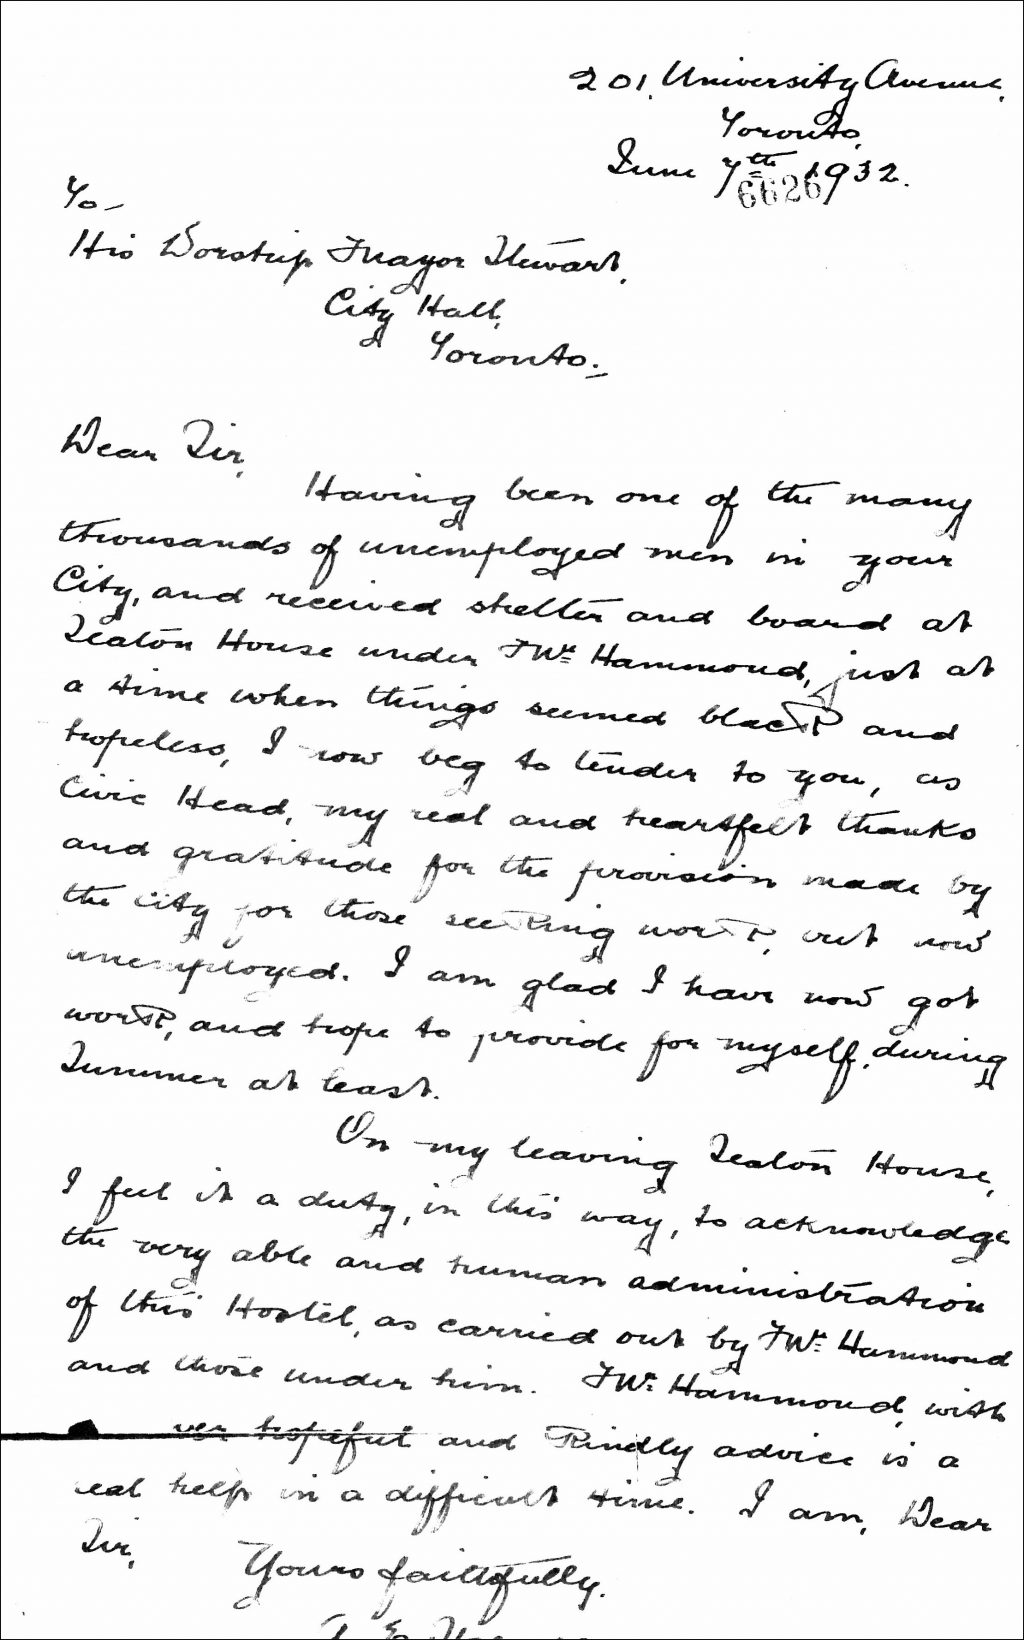 201, University Avenue,
Toronto,
June 7th 1932.
6626
To
His Worship Mayor Stewart,
City Hall,
Toronto.
Dear Sir,
Having been one of the many
thousands of unemployed men in your
City, and received shelter and board at
Seaton House under Mr. Hammond, just at
a time when things seemed black and
hopeless, I now beg to tender to you, as
Civic Head, my real and heartfelt thanks
and gratitude for the provision made by
the City for those seeking work, but now
unemployed. I am glad I have now got
work, and hope to provide for myself, during
Summer at least.
On my leaving Seaton House,
I feel it a duty, in this way, to acknowledge
the very able and human administration
of this Hostel, as carried out by Mr. Hammond
and those under him. Mr. Hammond, with
ever hopeful and kindly advice is a
real help in a difficult time. I am, Dear
Sir,
Yours faithfully.